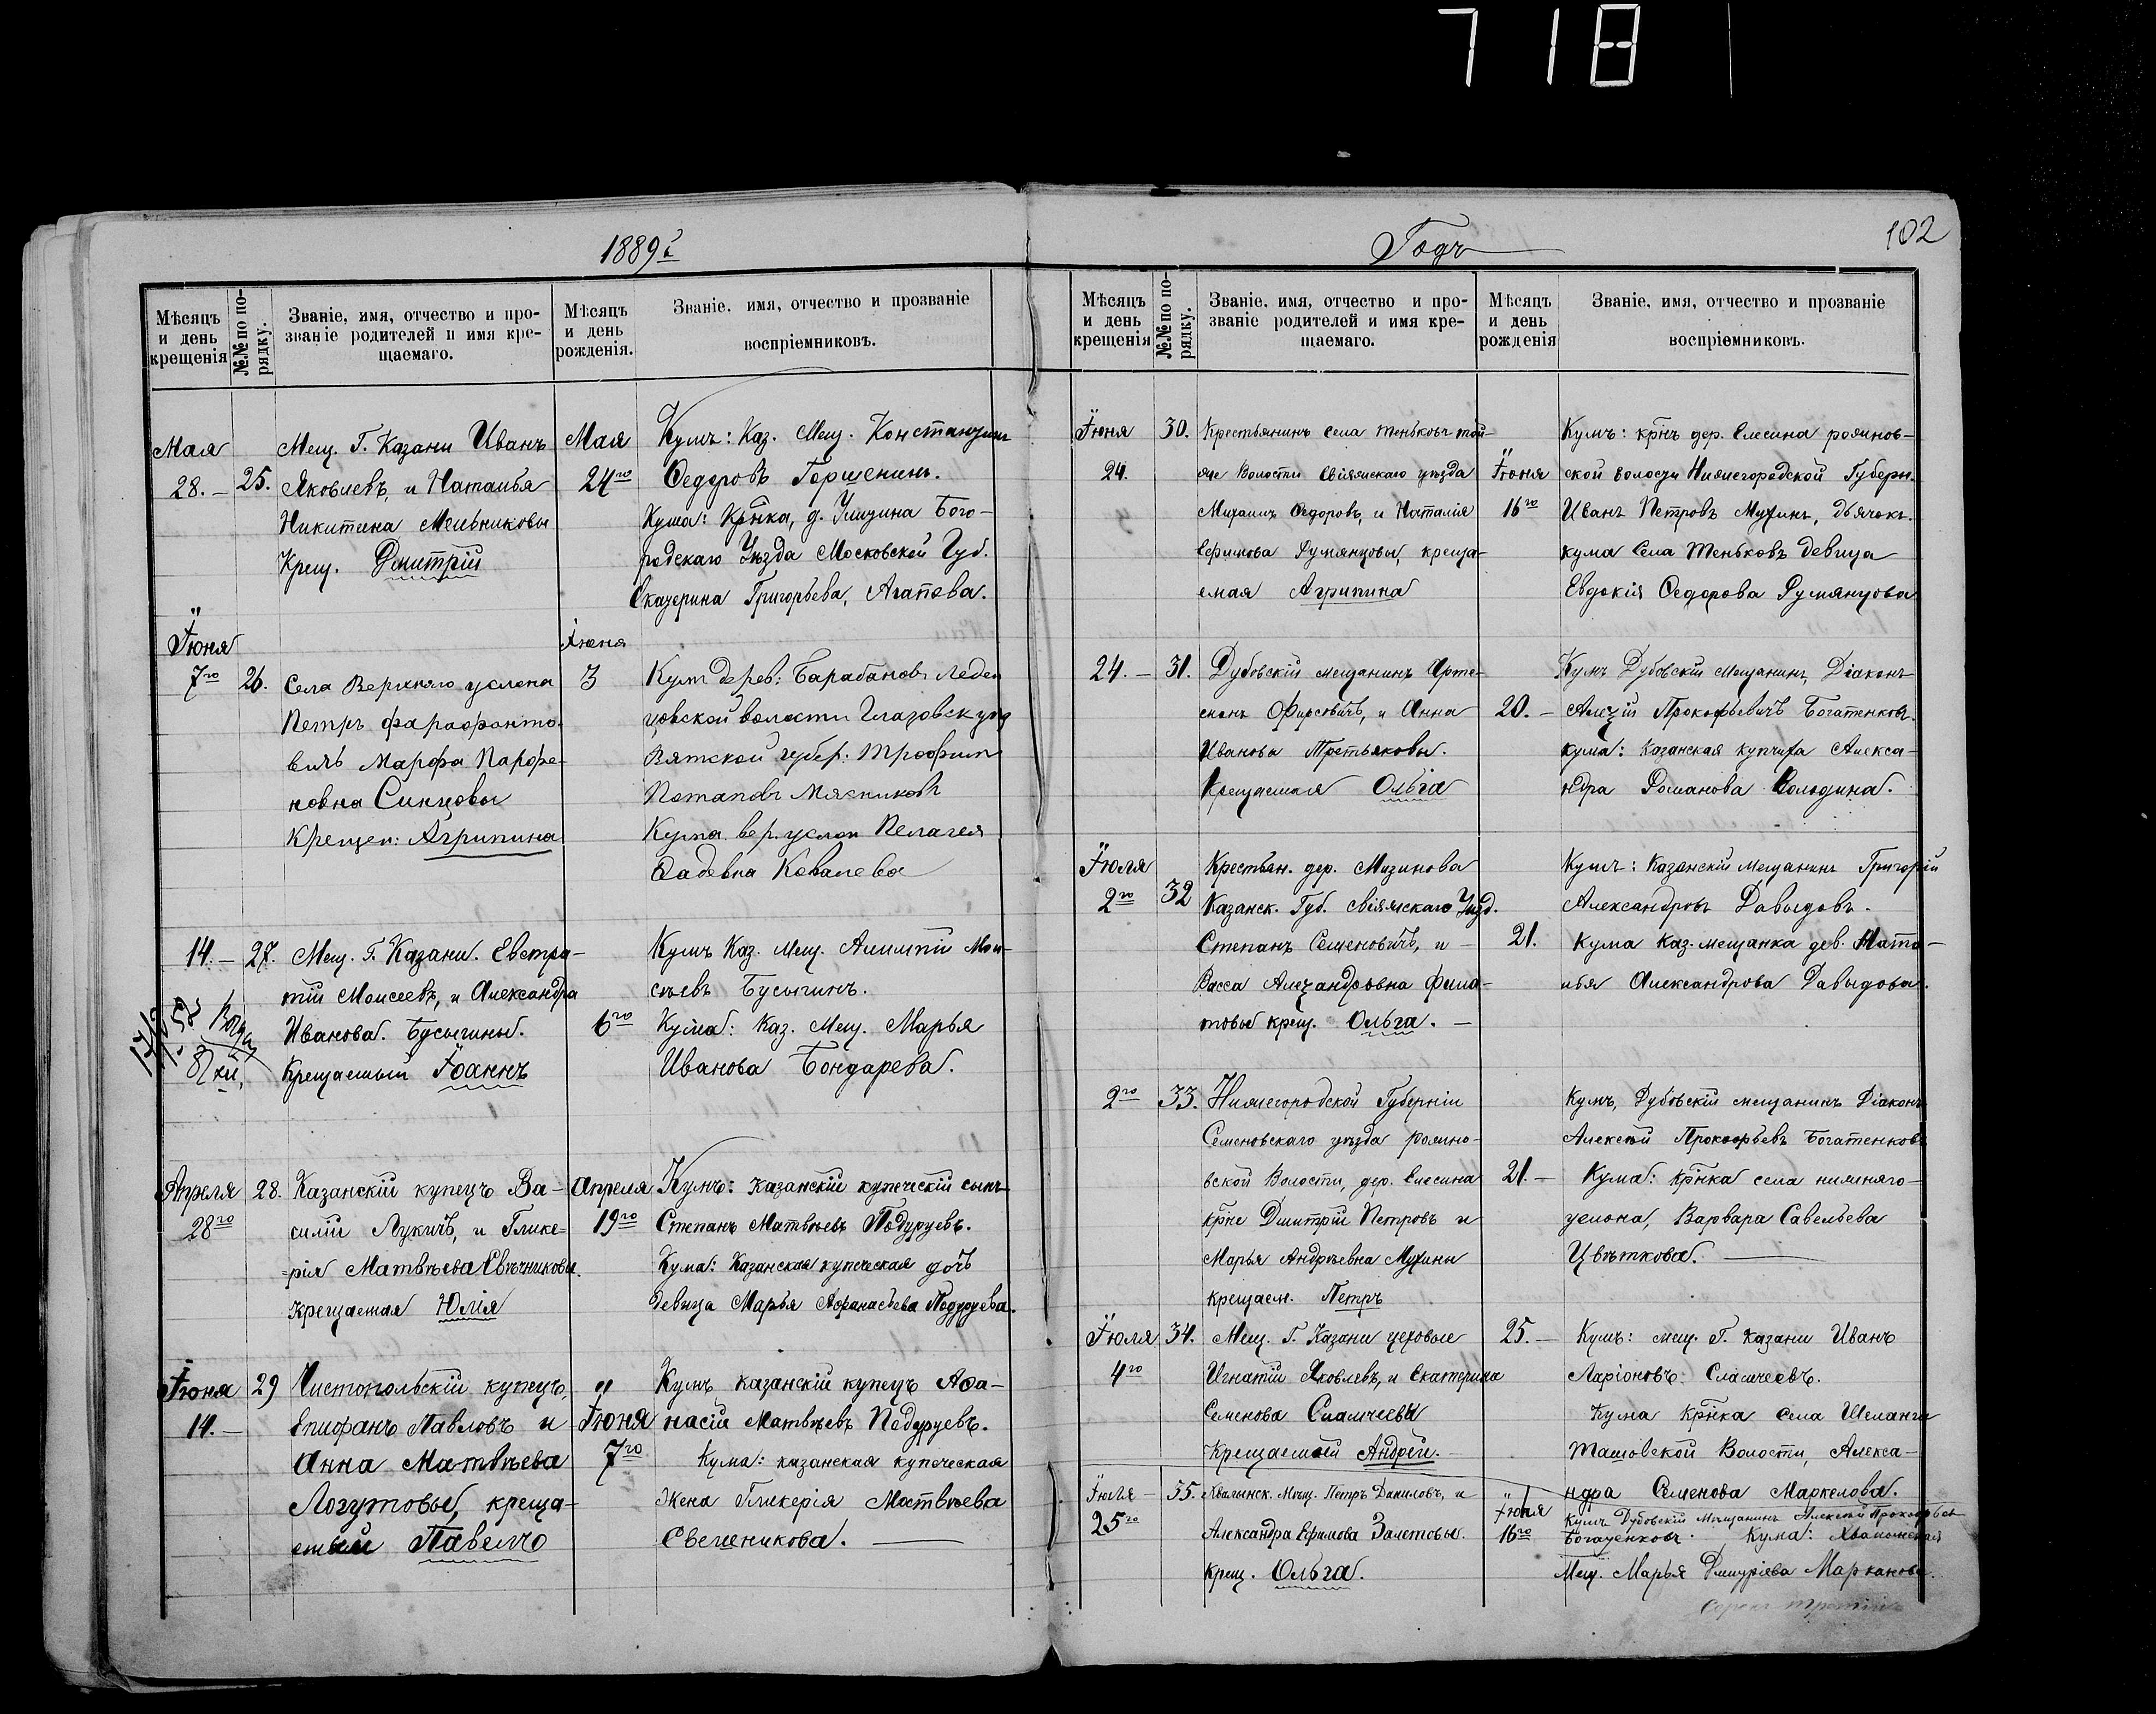 718
1889й
Годъ
102
Мѣсяцъ и день крещенія
№№ по порядку.
Званіе, имя, отчество и прозваніе родителей и имя крещаемаго.
Мѣсяцъ и день рожденія.
Званіе, имя, отчество и прозваніе воспріемниковъ.
Мая
28. — 25.
Мещ. Г. Казани Иванъ
Яковлевъ, и Наталья
Никитина Мельниковы
Крещ. Дмитрій
Мая
24го
Кумъ: Каз. Мещ. Константинъ
Ѳедоровъ Горшенинъ.
Кума: Крнка, д.
Бого-
родскаго Уѣзда Московской Губ.
Екатерина Григорьева, Агапова.
Іюня
7го 26.
Села Верхняго услона
Петръ
Марфа Парфе-
новна Синцовы
Крещен: Агрипина
Іюня
3
Кумъ дерев: Барабановъ Леден
цовской волости Глазовск уѣз
Вятской губер: Трофим
Потаповъ Мясниковъ
Кума вер. услон Пелагея
Фадевна Ковалева
14. — 27.
Мещ. Г. Казани. Евстра-
тій Моисеевъ, и Александра
Иванова. Бусыгины.
Крещаемый Іоаннъ
6го
Кумъ Каз. Мещ. Алимпій Мои-
сѣевъ Бусыгинъ.
Кума: Каз. Мещ. Марья
Иванова Бондарева.
Апреля 28.
28го
Казанскій купецъ Ва-
силій Лукичъ, и Глике-
рія Матвѣева Свѣчниковы.
крещаемая Юлія
Апреля
19го
Кумъ: Казанскій купеческій сынъ
Степанъ Матвѣевъ Подуруевъ.
Кума: Казанская купеческая дочь
девица Марья Афанасьева Подуруева.
Іюня 29
14. —
Чистопольскій купецъ,
Епифанъ Павловъ и
Анна Матвѣева
Логутовы, креща-
емый Павелъ
"
Іюня
7го
Кумъ казанскій купецъ Афа-
насій Матвѣевъ Подуруевъ.
Кума: казанская купеческая
жена Гликерія Матвѣева
Свешникова.
Мѣсяцъ и день крещенія
№№ по порядку.
Званіе, имя, отчество и прозваніе родителей и имя крещаемаго.
Мѣсяцъ и день рожденія
Званіе, имя, отчество и прозваніе воспріемниковъ.
Іюня 30.
24.
Крестьянинъ села теньковъ той-
же Волости Свіяжскаго уѣзда
Михаилъ Ѳедоровъ, и Наталія
Ефимова Румянцовы, креща-
емая Агрипина
Іюня
16го
Кумъ: крнъ дер. Елесина рожнов-
ской волости Нижегородской Губерн.
Иванъ Петровъ Мухинъ, дьячокъ.
кума Села Теньковъ девица
Евдокія Ѳедорова Румянцова
24. — 31.
Дубовскій мещанинъ Арте-
монъ Фирсовичъ, и Анна
Иванова Третьяковы.
Крещаемая Ольга
20. —
Кумъ Дубовскій Мещанинъ, Діаконъ
Алексѣй Прокофьевичъ Богатенковъ.
кума: Казанская купчиха Алекса-
ндра Романова Володина.
Іюля
2го 32
Крестьян. дер. Мизинова
Казанск. Губ. Свіяжскаго Уѣзд.
Степанъ Семеновичъ, и —
Васса Александровна Фила-
товы крещ. Ольга. —
21.
Кумъ: Казанскій мещанинъ Григорій
Александровъ Давыдовъ.
Кума Каз. мещанка дев. Ната-
лья Александрова Давыдова.
2го 33.
Нижегородской Губерніи
Семеновскаго уѣзда рожно-
вской Волости, дер. Елесина
крне Дмитрій Петровъ и
Марья Андрѣевна Мухины
крещаем. Петръ
21. —
Кумъ, Дубовскій мещанинъ Діаконъ
Алексѣй Прокофьевъ Богатенковъ
Кума: Крнка села нижняго
услона, Варвара Савельева
Цвѣткова.
Іюля 34.
4го
Мещ. Г. Казани цеховые
Игнатій Яковлевъ, и Екатерина
Семенова
Крещаемый Андрей. —
25. —
Кумъ: мещ. Г. Казани Иванъ
Ларіоновъ.
Кума Крнка Села Шеланги
Ташовской Волости, Алекса-
ндра Семенова Маркелова.
Іюля — 35.
25го
Хвалынск. Мѣщ. Петръ Даниловъ, и
Александра Ефимова Залетовы.
крещ. Ольга.
Іюля
16го
Кумъ Дубовскій Мѣщанинъ Алексѣй Прокофьев
Богатенковъ. Кума: Хвалынская
Мещ. Марья Дмитріева